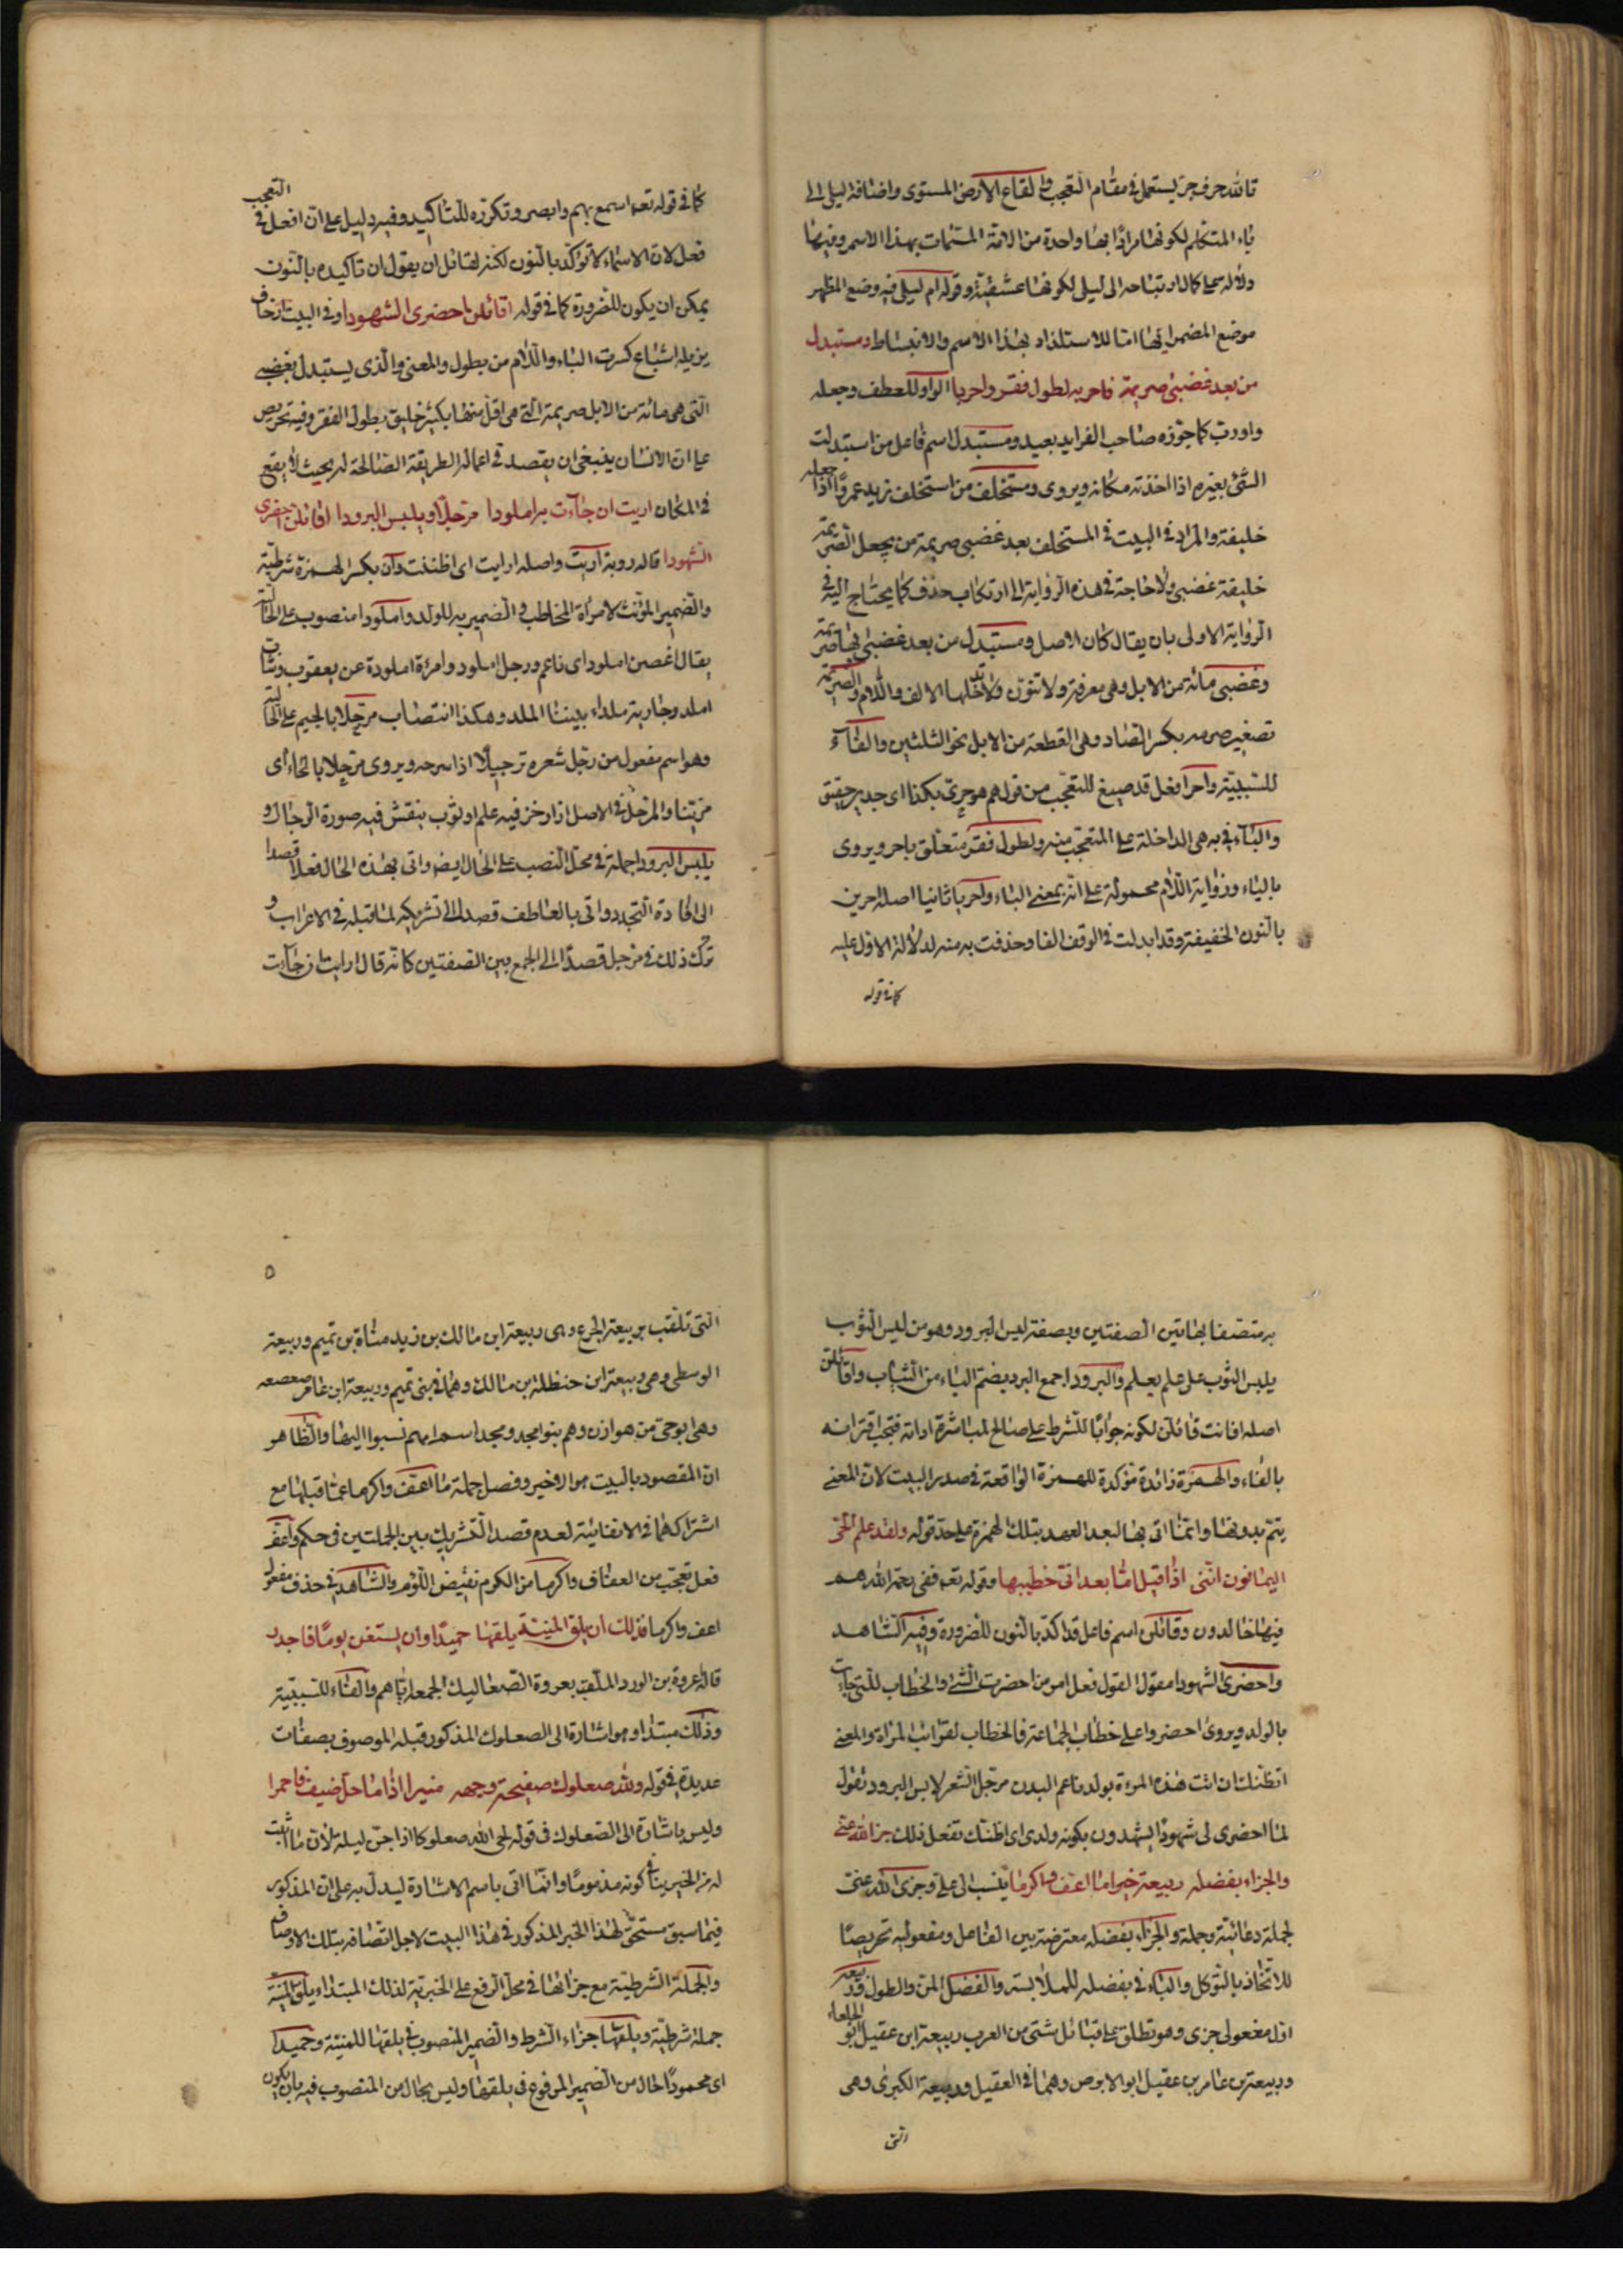 تالله حرف جر يستعمل في مقام التعجب والقاع الأرض المستوى واضافة ليلى الى
ياء المتكلم لكونها مرادا بها واحدة من الامة المسماة بهذا الاسم وفيها
دلالة على كمال ارتباطه الى ليلى لكونها عشيقته وقوله ام ليلى فيه وضع المظهر
موضع المضمر ايضا اما للاستلذاذ بهذا الاسم والانبساط ومستبدل
من بعد غضبى صريمة فاحر به لطول فقر واحريا الواو للعطف وجعله
واو رب كما جوزه صاحب الفرايد بعيد ومستبدل اسم فاعل من استبدلت
الشئ بغيره اذا اخذته مكانه ويروى ومستخلف من استخلف زيد عمروا اذا جعله
خليفة والمراد في البيت في المستخلف بعد غضبى صريمة من يجعل الصريمة
خليفة غضبى ولا حاجة في هذه الرواية الى ارتكاب حذف كما يحتاج اليه في
الرواية الاولى بان يقال كان الاصل ومستبدل من بعد غضبى بها صريمة
وغضبى مائة من الابل وهى معرفة ولا تنون ولا تدخلها الالف واللام والصريمة
تصغير صرمه بكسر الصاد وهى القطعة من الابل نحو الثلثين والفاء
للسببية واحر افعل قد صيغ للتعجب من قولهم هو حرى بكذا اى جدير حقيق
والباء في به هى الداخلة على المتعجب منه ولطول فقر متعلق باحر ويروى
بالباء ورواية اللام محمولة على انه بمعنى الباء واحريا ثانيا اصله احرين
بالنون الخفيفة وقد ابدلت في الوقف الفا وحذفت به منه لدلالة الاول عليه
كما في قوله
كما في قوله تعه اسمع بهم وابصر وتكرره للتاكيد وفيه دليل على ان افعل في التعجب
فعل لان الاسماء لا تؤكد بالنون لكنه لقائل ان يقول ان تاكيده بالنون
يمكن ان يكون للضرورة كما في قوله اقائلن احضرى الشهودا وفي البيت زحاف
يزيله اشباع كسرت الباء واللام من بطول والمعنى والذى يستبدل بغضبى
التى هى مائة من الابل صريمة التى هى اقل منها بكثير خليق بطول الفقر وفيه تحريص
على ان الانسان ينبغى ان يقصد في اعماله الطريقة الصالحة له بحيث لا يقع
في المكان اريت ان جاءت به املودا مرجلا ويلبس البرودا اقائلن احضرى
الشهودا قاله روبة اريت واصله ارايت اى اظننت وان بكسر الهمزة شرطية
والضمير المؤنث لامراة المخاطب والضمير به للولد واملودا منصوب على الحالية
يقال غصن املود اى ناعم ورجل املود وامرءة املودة عن يعقوب وشاب
املد وجارية ملداء بينتا الملد وهكذا انتصاب مرجلا بالجيم على الحال
وهو اسم مفعول من رجل شعره ترجيلا اذا سرحه ويروى مرحلا بالحاء اى
مزينا والمرحل في الاصل ازار خز فيه علم او ثوب ينقش فيه صورة الرحال و
يلبس البرودا جملة في محل النصب على الحال ايضا واتى بهذه الحال فعلا قصدا
الى افادة التجدد واتى بالعاطف قصدا الى تشريكه لما قبله في الاعراب و
ترك ذلك في مرجل قصدا الى الجمع بين الصفتين كانه قال ارايت ان جاءت
به متصفا بهاتين الصفتين وبصفة لبس البرود وهو من لبس الثوب
يلبس الثوب على علم يعلم والبرود جمع البرد بضم الباء من الثياب واقائلن
اصله افانت قائلن لكونه جوابا للشرط على صالح لمباشرة اداته فتجب اقترانه
بالفاء والهمزة زائدة مؤكدة للهمزة الواقعة في صدر البيت لان المعنى
يتم بدونها وانما اتى بها لبعد العهد بتلك الهمزة على حد قوله ولقد علم الحى
اليمانون اننى اذا قيل اما بعد انى خطيبها وقوله تعه ففى رحمة الله هم
فيها خالدون وقائلن اسم فاعل قد اكد بالنون للضرورة وفيه الشاهد
واحضرى الشهودا مقول القول فعل امر من احضرت الشئ والخطاب للتى جاءت
بالولد ويروى احضروا على خطاب الجماعة فالخطاب لقرائب المراة والمعنى
اتظنك ان اتت هذه المرءة بولد ناعم البدن مرجل الشعر لابس البرود تقول
لها احضرى لى شهودا يشهدون بكونه ولدى اى اظنك تفعل ذلك جزى الله عنى
والجزاء بفضله ربيعة خيرا ما اعف واكرما ينسب الى على وجزى الله عنى
جملة دعائية وجملة والجزاء بفضله معترضة بين الفاعل ومفعوليه تحريصا
للاتخاذ بالتوكل والباء في بفضله للملابسة والفضل المن والطول وربيعة
اول مفعولى جزى وهو تطلق على قبائل شتى من العرب ربيعة ابن عقيل ابو الخلعاء
وربيعة بن عامر بن عقيل ابو الابرص وهما في العقيل وربيعة الكبرى وهى
التى
٥
التى تلقب بربيعة الجوع وهى ربيعة ابن مالك بن زيد مناة بن تميم وربيعة
الوسطى وهى ربيعة ابن حنظلة بن مالك وهما في بنى تميم وربيعة ابن عامر صعصعه
وهى ابو حى من هوازن وهم بنو مجد ومجد اسم امهم نسبوا اليها والظاهر
ان المقصود بالبيت هو الاخير وفصل جملة ما اعف واكرما عما قبلها مع
اشتراكهما في الانشائية لعدم قصد التشريك بين الجملتين في حكم واعف
فعل تعجب من العفاف واكرما من الكرم نقيض اللؤم والشاهد في حذف مفعول
اعف واكرما فذلك ان يلق المنية يلقها حميدا وان يستغن يوما فاجدر
قاله عروة بن الورد الملقب بعروة الصعاليك لجمعه اياهم والفاء للسببية
وذلك مبتدا وهو اشارة الى الصعلوك المذكور قبله الموصوف بصفات
عديدة في قوله ولله صعلوك صفيحة وجهه منيرا اذا ما حل ضيف فاحمرا
وليس باشارة الى الصعلوك في قوله لحى الله صعلوكا اذا جن ليله لان ما اثبت
له من الخير ينافى كونه مذموما وانما اتى باسم الاشارة ليدل به على ان المذكور
فيما سبق مستحق لهذا الخبر المذكور في هذا البيت لاجل اتصافه بتلك الاوصاف
والجملة الشرطية مع جزائها في محل الرفع على الخبرية لذلك المبتداء يلق المنية
جملة شرطية ويلقها جزاء الشرط والضمير المنصوب في يلقها للمنية وحميدا
اى محمودا حال من الضمير المرفوع في يلقها وليس بحال من المنصوب فيه بان يكون